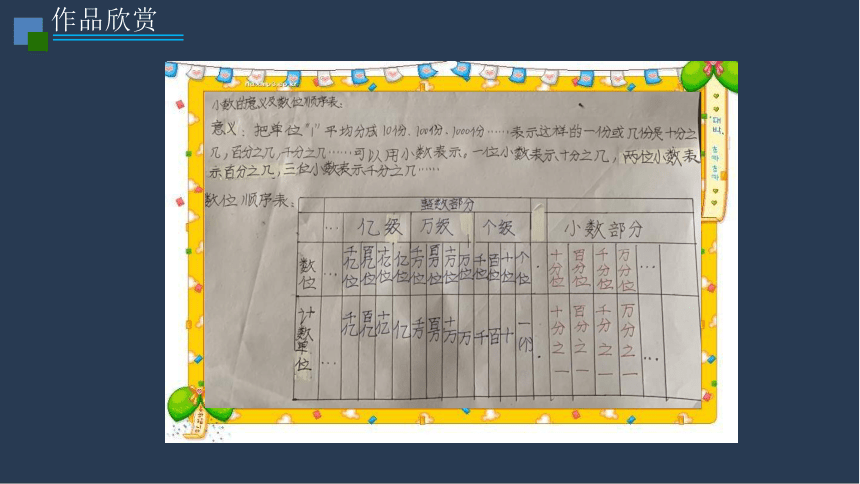 作品欣赏
小数的意义及数位顺序表:
意义: 把单位"1"平均分成10份、100份、1000份……表示这样的一份或几份是十分之
几,百分之几,千分之几……可以用小数表示。一位小数表示十分之几,两位小数表
示百分之几,三位小数表示千分之几……
数位顺序表:
整数部分
… 亿级 万级 个级 小数部分
数位 … 千亿位 百亿位 十亿位 亿位 千万位 百万位 十万位 万位 千位 百位 十位 个位 · 十分位 百分位 千分位 万分位 …
计数单位 … 千亿 百亿 十亿 亿 千万 百万 十万 万 千 百 十 一(个) · 十分之一 百分之一 千分之一 万分之一 …